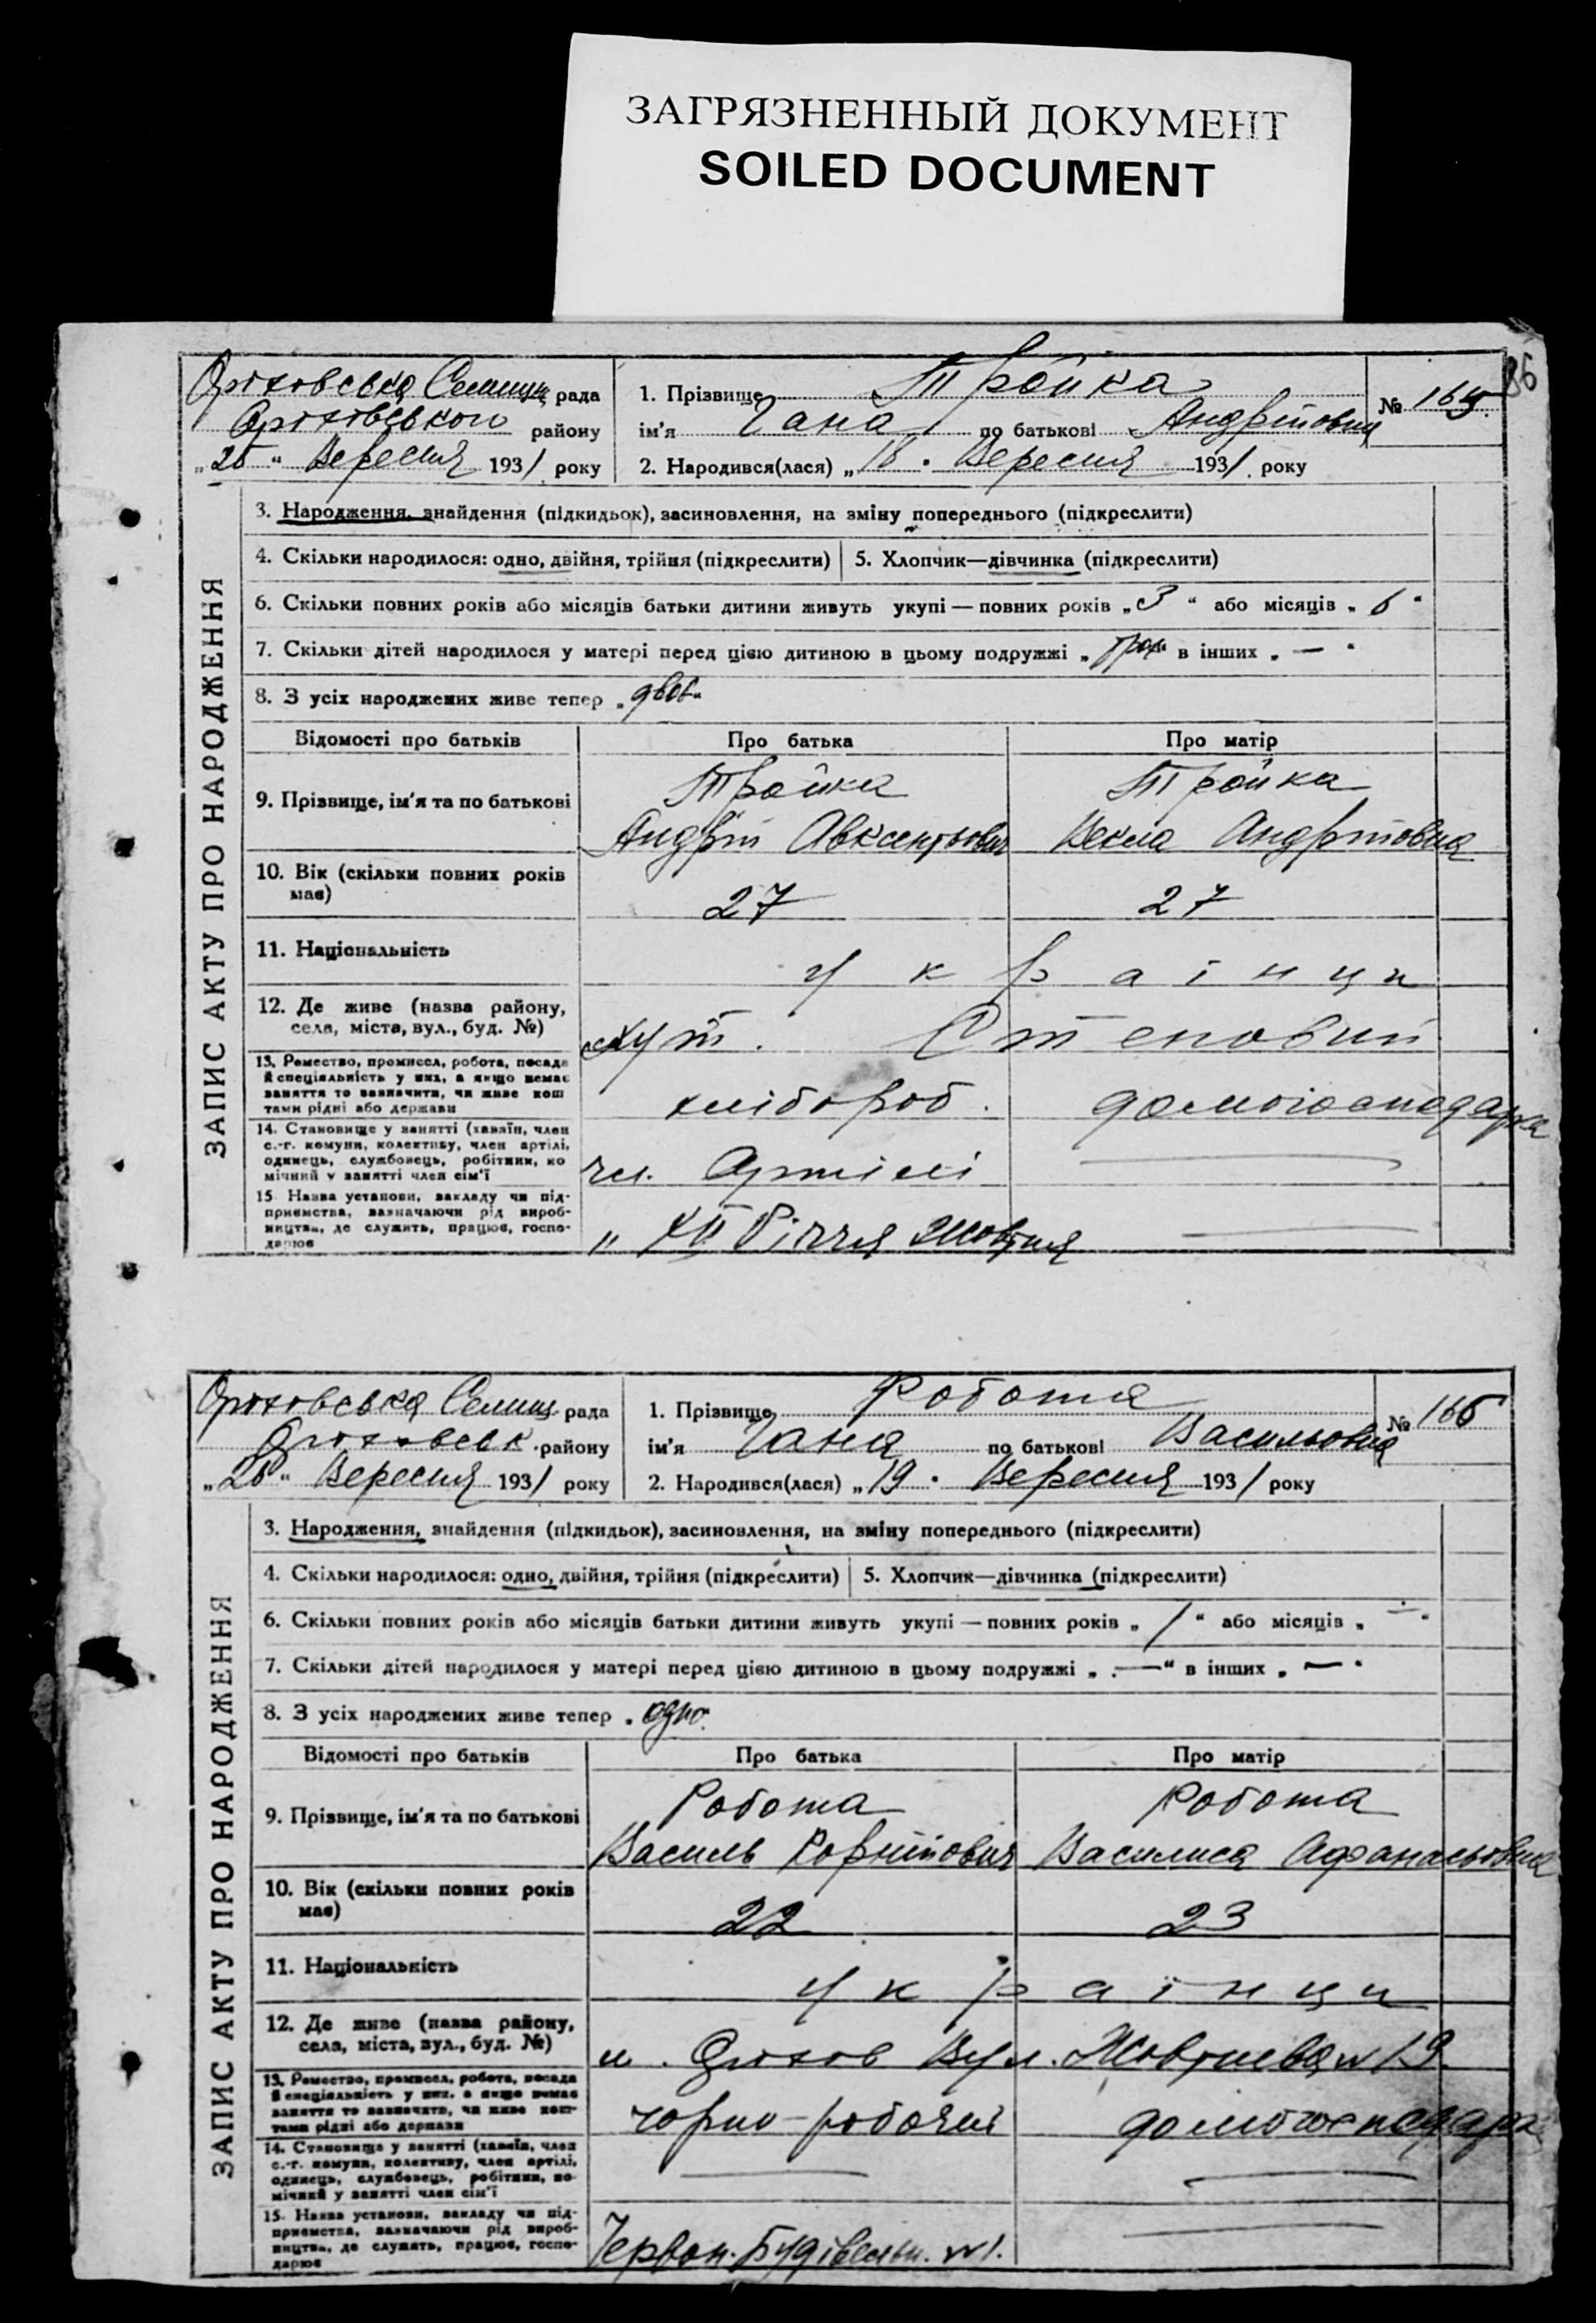 ЗАГРЯЗНЕННЫЙ ДОКУМЕНТ
SOILED DOCUMENT
86
Оріховська Селищн рада
Оріхівського району
„ 26 “ Вересня 1931 року
1. Прізвище Тройка № 165.
ім'я Гана по батькові Андріївна
2. Народився(лася) „ 18 “ Вересня 1931 року
ЗАПИС АКТУ ПРО НАРОДЖЕННЯ
3. Народження, знайдення (підкидьок), засиновлення, на зміну попереднього (підкреслити)
4. Скільки народилося: одно, двійня, трійня (підкреслити) 5. Хлопчик—дівчинка (підкреслити)
6. Скільки повних років або місяців батьки дитини живуть укупі — повних років „ 3 “ або місяців „ 6 “
7. Скільки дітей народилося у матері перед цією дитиною в цьому подружжі „ “ в інших „ — “
8. З усіх народжених живе тепер „ двоє “
Відомості про батьків Про батька Про матір
9. Прізвище, ім'я та по батькові
Тройка Тройка
Андрій Авксентьович Векла Андріївна
10. Вік (скільки повних років має)
27 27
11. Національність
українци
12. Де живе (назва району,
села, міста, вул., буд. №)
хут. Степовий
13. Ремество, промисел, робота, посада
й спеціяльність у них, а якщо немає
заняття то зазначити, чи живе кош
тами рідні або держави
хлібороб. домогосподарка
14. Становище у занятті (хазяїн, член
с.-г. комуни, колективу, член артілі,
одинець, службовець, робітник, по
мічний у занятті член сім'ї
чл. Артілі —
15 Назва установи, закладу чи під-
приємства, зазначаючи рід вироб-
ництва, де служить, працює, госпо-
дарює
„ XII Річчя Жовтня —
Оріховська Селищ рада
Оріховськ. району
„ 26 “ Вересня 1931 року
1. Прізвище Робота № 166
ім'я Ганя по батькові Васильовна
2. Народився(лася) „ 19 “ Вересня 1931 року
ЗАПИС АКТУ ПРО НАРОДЖЕННЯ
3. Народження, знайдення (підкидьок), засиновлення, на зміну попереднього (підкреслити)
4. Скільки народилося: одно, двійня, трійня (підкреслити) 5. Хлопчик—дівчинка (підкреслити)
6. Скільки повних років або місяців батьки дитини живуть укупі — повних років „ 1 “ або місяців „ — “
7. Скільки дітей народилося у матері перед цією дитиною в цьому подружжі „ — “ в інших „ — “
8. З усіх народжених живе тепер „ одно “
Відомості про батьків Про батька Про матір
9. Прізвище, ім'я та по батькові
Робота Робота
Василь Корнійович Василиса Афанасьовна
10. Вік (скільки повних років
має)
22 23
11. Національність
українци
12. Де живе (назва району,
села, міста, вул., буд. №)
м. Оріхов Вул. Жовтнева № 19
13. Ремество, промисел, робота, посада
й спеціяльність у них, а якщо немає
заняття то зазначити, чи живе кош-
тами рідні або держави
чорно-робочий домогосподарк
14. Становище у занятті (хазяїн, член
с.-г. комуни, колективу, член артілі,
одинець, службовець, робітник, по-
мічний у занятті член сім'ї
— —
15. Назва установи, закладу чи під-
приємства, зазначаючи рід вироб-
ництва, де служить, працює, госпо-
дарює
Червон. Будівельн. №1. —